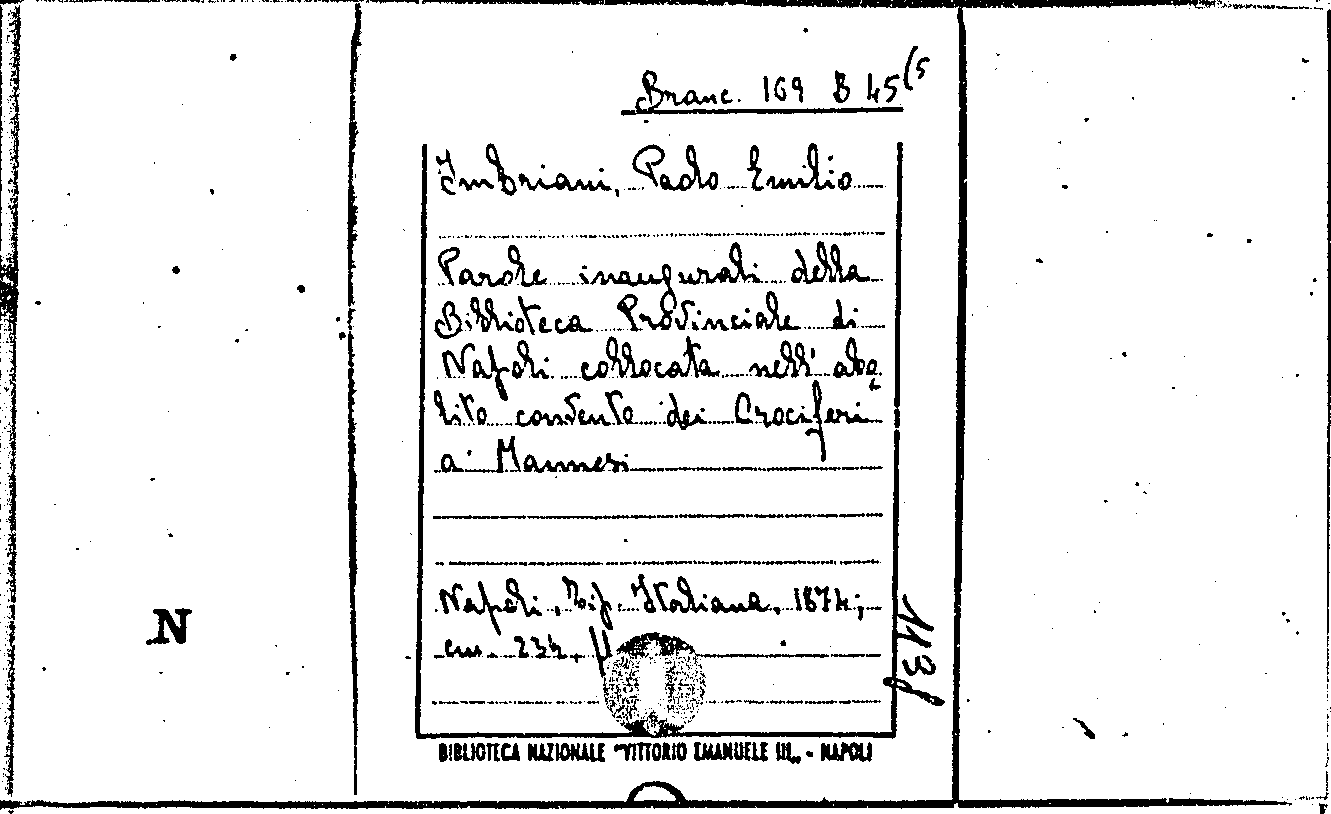 Branc. 169 B 45(5
Imbriani, Paolo Emilio
Parole inaugurali della
Biblioteca Provinciale di
Napoli collocata nell' abo-
lito convento dei Crociferi
a' Mannesi
Napoli, Tip. Italiana, 1874;
cm. 23½,
N
BIBLIOTECA NAZIONALE "VITTORIO EMANUELE III„ - NAPOLI